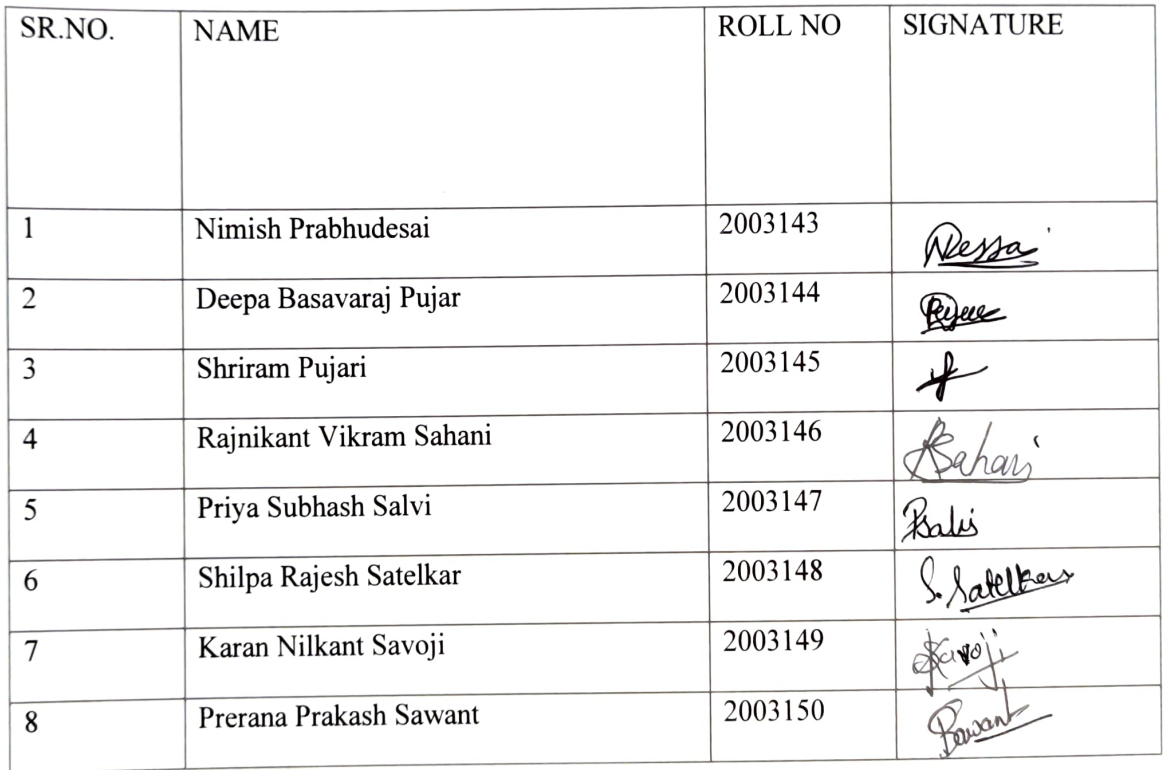 SR.NO. NAME ROLL NO SIGNATURE
1 Nimish Prabhudesai 2003143
2 Deepa Basavaraj Pujar 2003144
3 Shriram Pujari 2003145
4 Rajnikant Vikram Sahani 2003146 Sahani
5 Priya Subhash Salvi 2003147 PSalvi
6 Shilpa Rajesh Satelkar 2003148 S. Satelkar
7 Karan Nilkant Savoji 2003149 Savoji
8 Prerana Prakash Sawant 2003150 PSawant